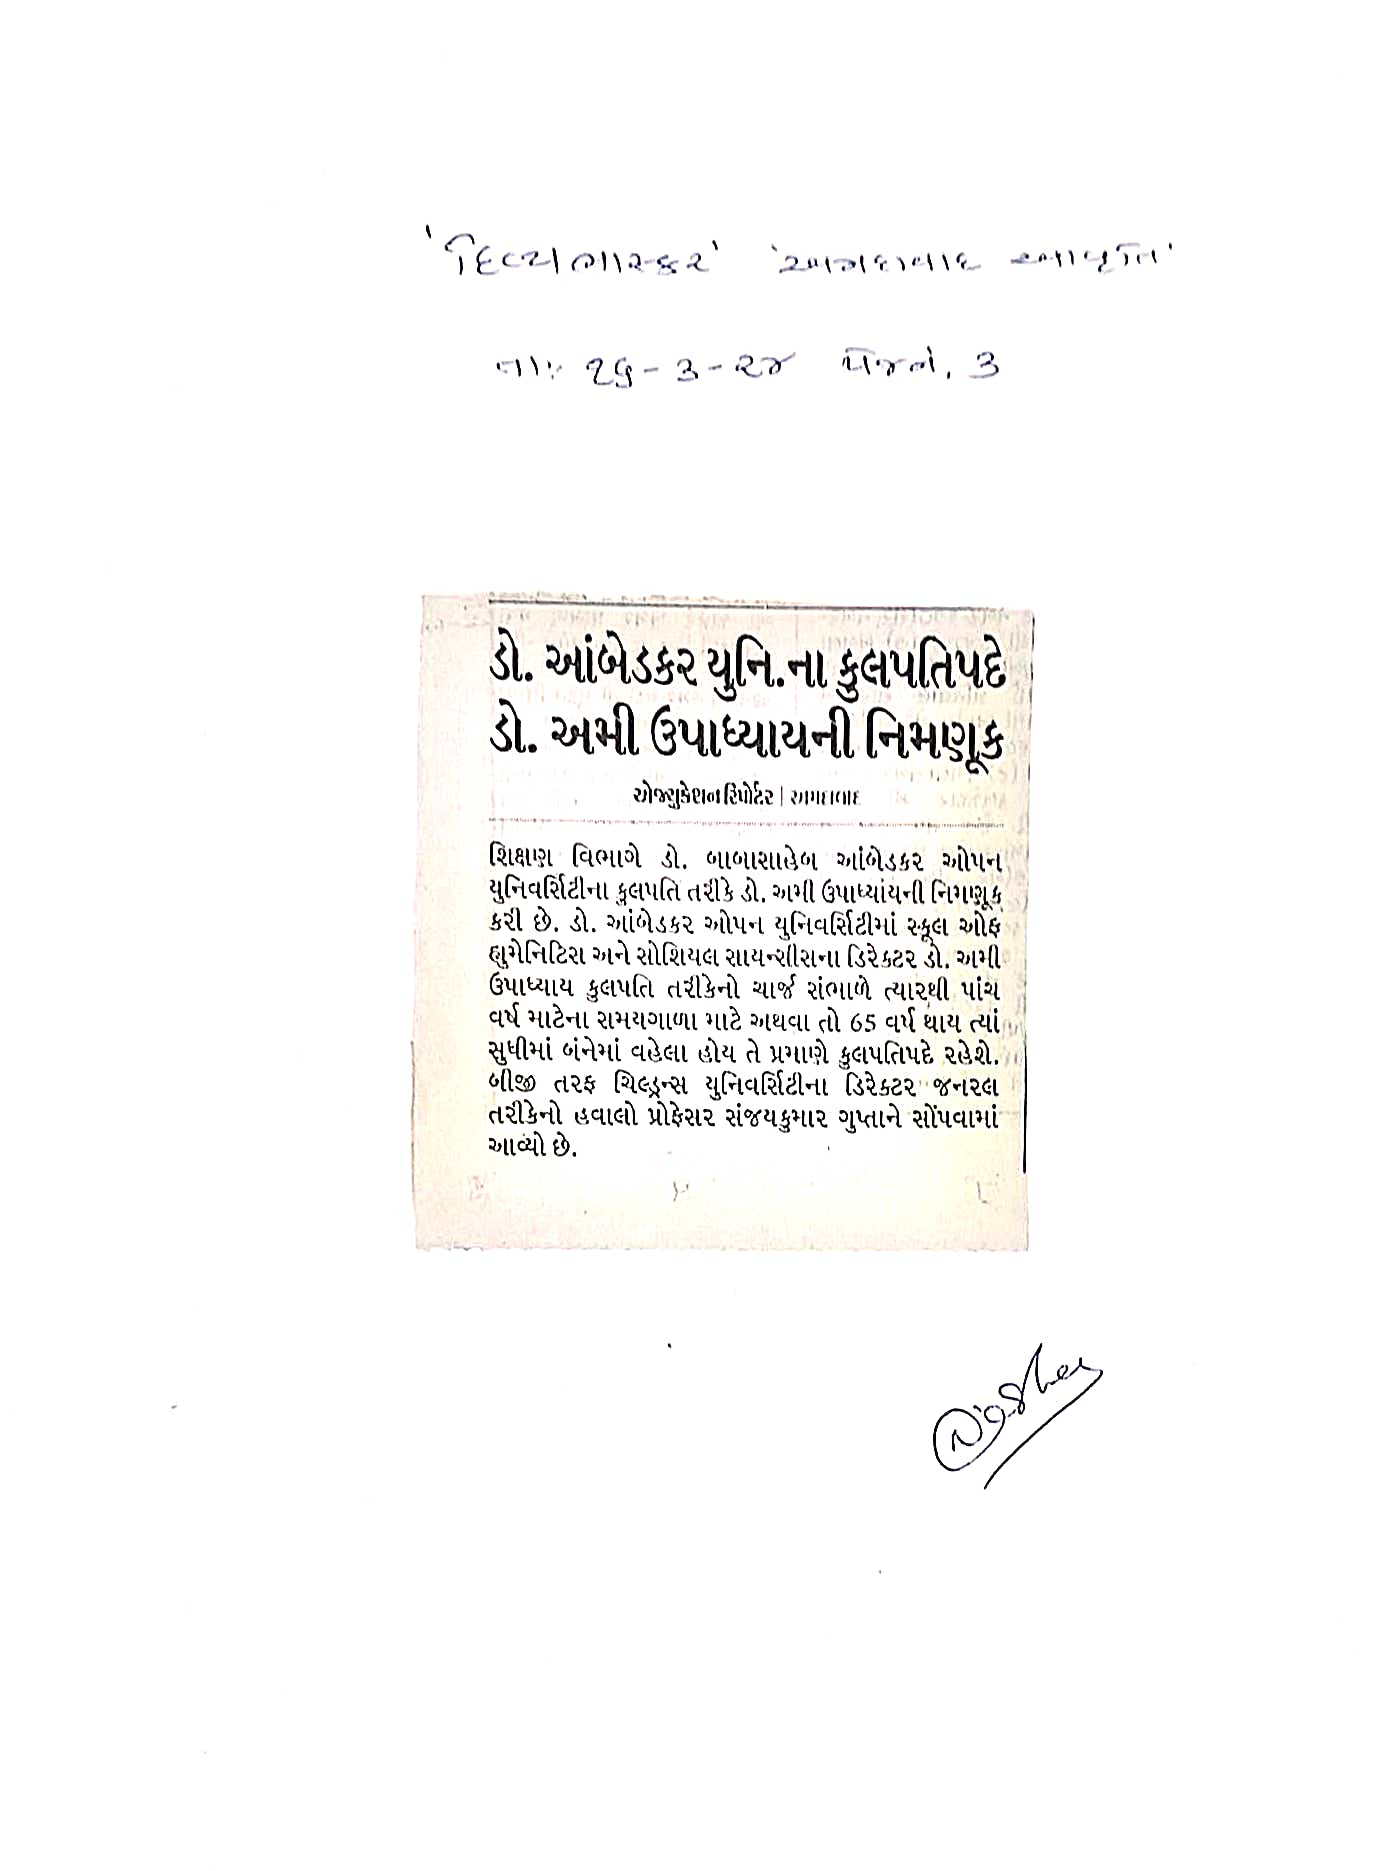 'દિવ્યભાસ્કર' 'અમદાવાદ આવૃત્તિ'
તાઃ ૧૬-૩-૨૪ પેજનં. ૩
ડો. આંબેડકર યુનિ.ના કુલપતિપદે
ડો. અમી ઉપાધ્યાયની નિમણૂક
એજ્યુકેશન રિપોર્ટર | અમદાવાદ
શિક્ષણ વિભાગે ડો. બાબાસાહેબ આંબેડકર ઓપન
યુનિવર્સિટીના કુલપતિ તરીકે ડો. અમી ઉપાધ્યાયની નિમણૂક
કરી છે. ડો. આંબેડકર ઓપન યુનિવર્સિટીમાં સ્કૂલ ઓફ
હ્યુમેનિટિસ અને સોશિયલ સાયન્સીસના ડિરેક્ટર ડો. અમી
ઉપાધ્યાય કુલપતિ તરીકેનો ચાર્જ સંભાળે ત્યારથી પાંચ
વર્ષ માટેના સમયગાળા માટે અથવા તો 65 વર્ષ થાય ત્યાં
સુધીમાં બંનેમાં વહેલા હોય તે પ્રમાણે કુલપતિપદે રહેશે.
બીજી તરફ ચિલ્ડ્રન્સ યુનિવર્સિટીના ડિરેક્ટર જનરલ
તરીકેનો હવાલો પ્રોફેસર સંજયકુમાર ગુપ્તાને સોંપવામાં
આવ્યો છે.